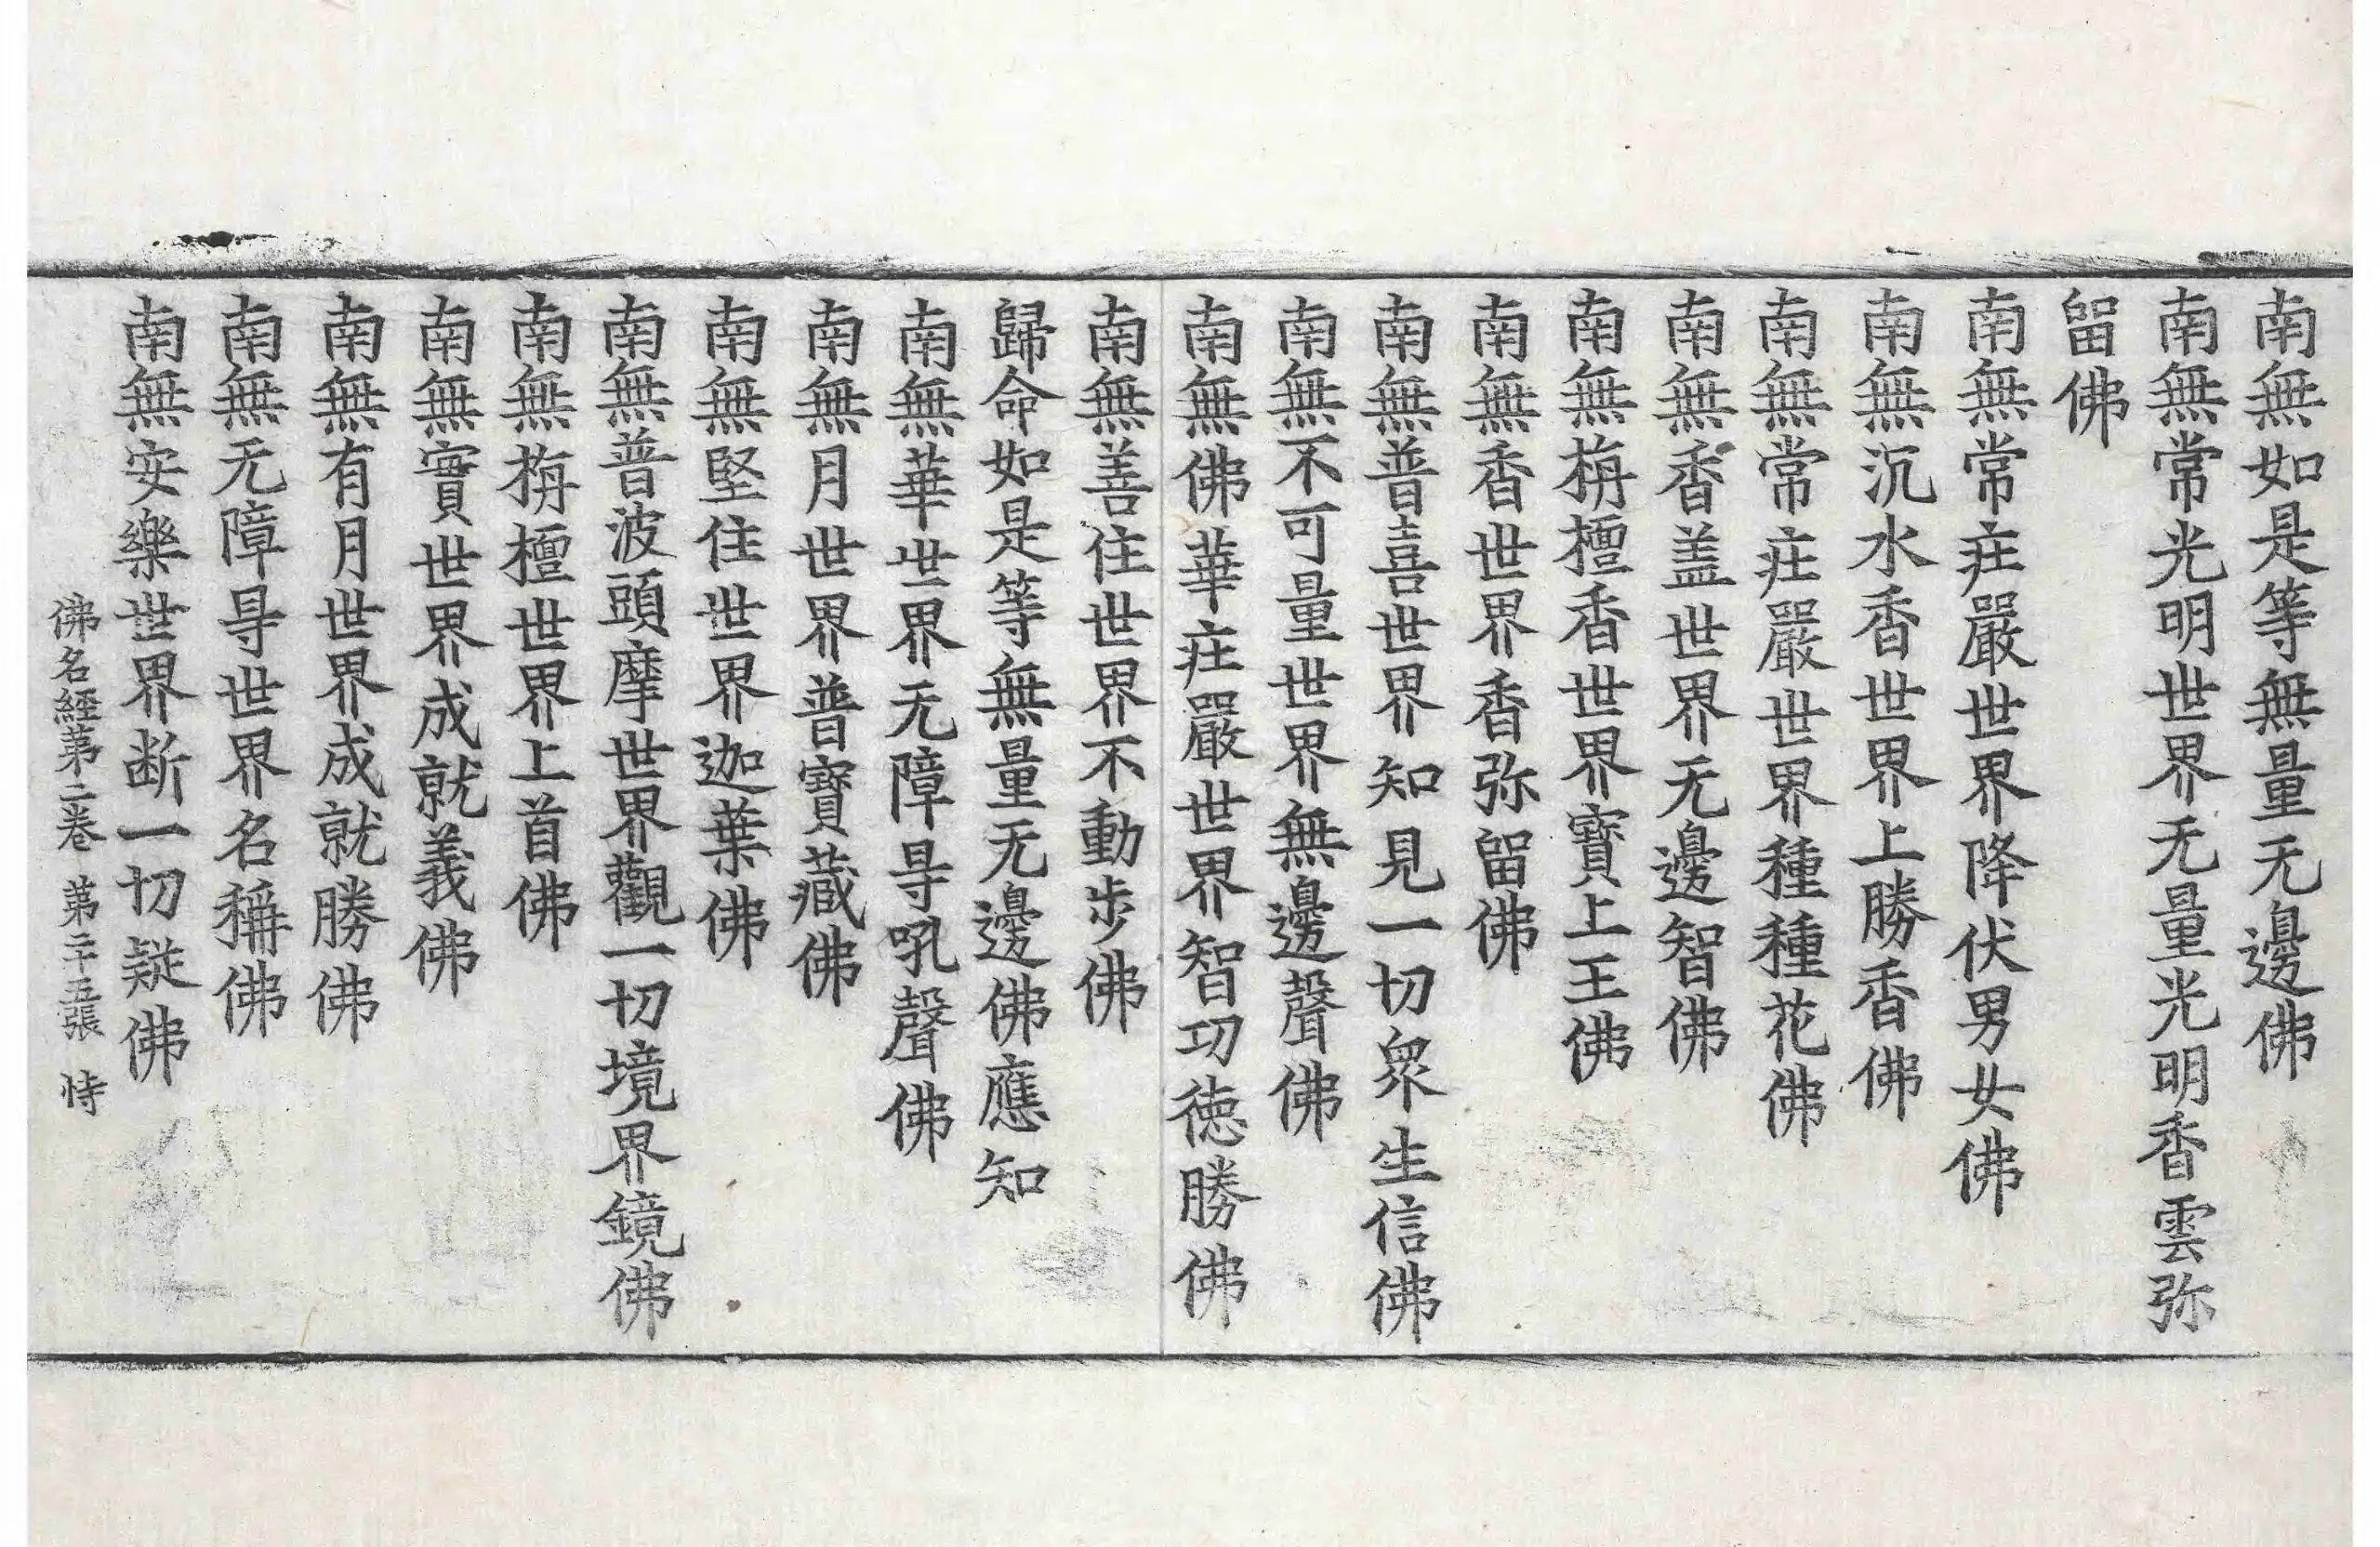 南無如是等無量无邊佛
南無常光明世界无量光明香雲弥
留佛
南無常莊嚴世界降伏男女佛
南無沉水香世界上勝香佛
南無常莊嚴世界種種花佛
南無香盖世界无邊智佛
南無栴檀香世界寶上王佛
南無香世界香弥留佛
南無普喜世界知見一切衆生信佛
南無不可量世界無邊聲佛
南無佛華莊嚴世界智功徳勝佛
南無善住世界不動步佛
歸命如是等無量无邊佛應知
南無華世界无障㝵吼聲佛
南無月世界普寶藏佛
南無堅住世界迦葉佛
南無普波頭摩世界觀一切境界鏡佛
南無栴檀世界上首佛
南無實世界成就義佛
南無有月世界成就勝佛
南無无障㝵世界名稱佛
南無安樂世界断一切疑佛
佛名經第二卷 第二十五張 恃